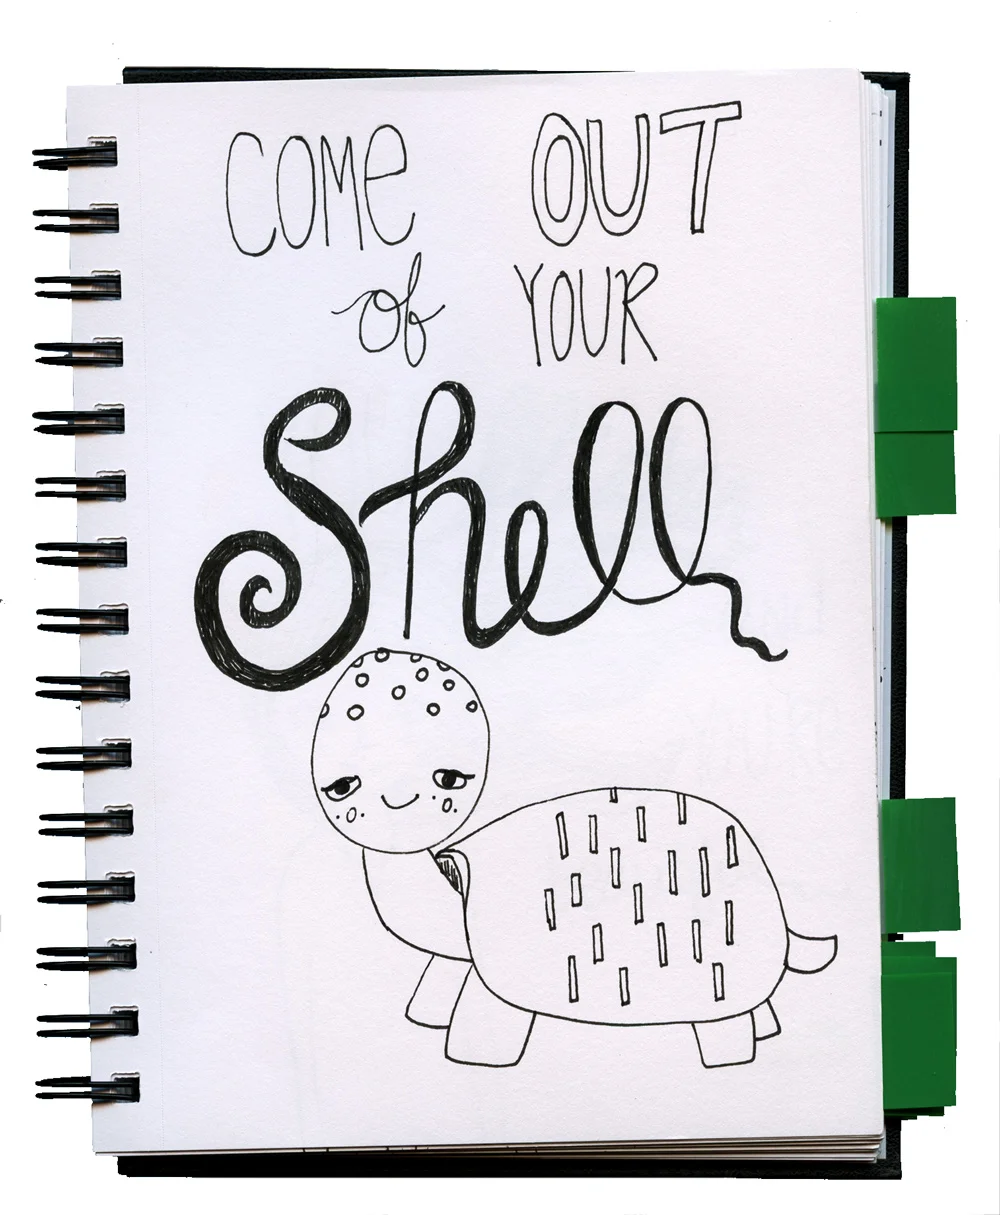 COME OUT
of YOUR
Shell